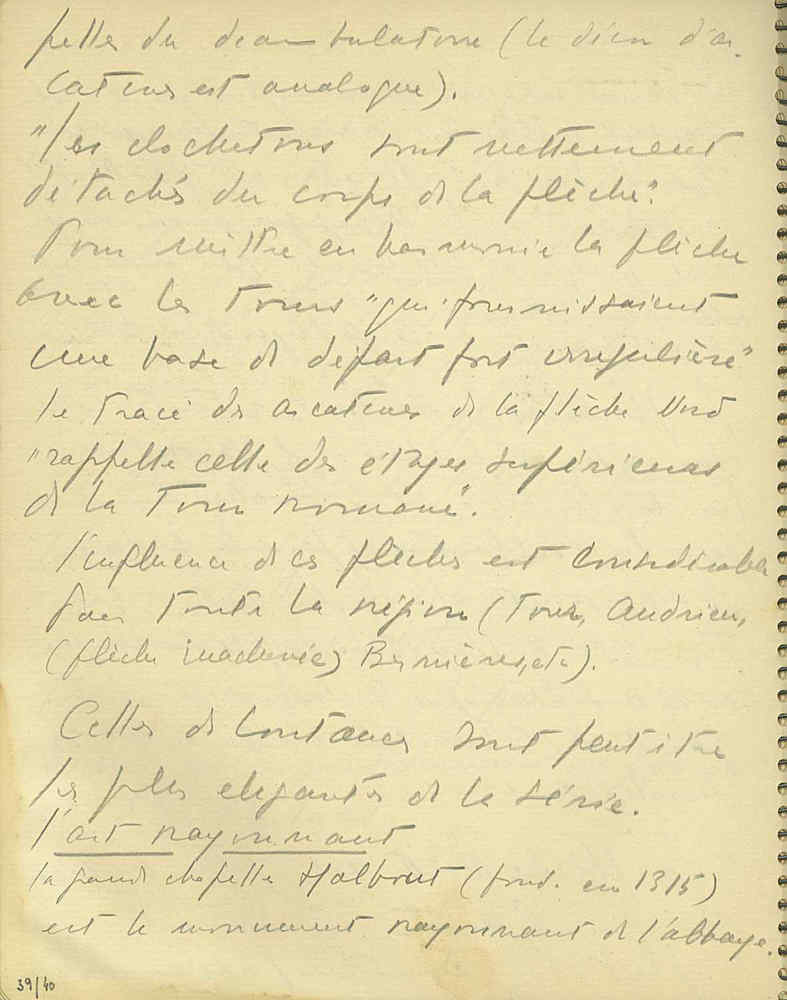 pelles du deambulatoire (le d'ar-
catures est analogue).
"Les clochetons sont nettement
détachés du corps de la flèche".
Pour mettre en harmonie la flèche
avec les tours "qui fournissaient
une base de départ fort irrégulière"
le tracé des arcatures de la flèche Nord
"rappelle celle des étages supérieurs
de la Tour romane".
l'influence de ces flèches est considérable
dans toute la région (Tour, Audrieu,
(flèche inachevée) Bernières, etc).
Celles de Coutances sont peut être
les plus elegantes de la série.
l'art rayonnant
la grande chapelle Halbout (fond. en 1315)
est le monument rayonnant de l'abbaye.
39/40